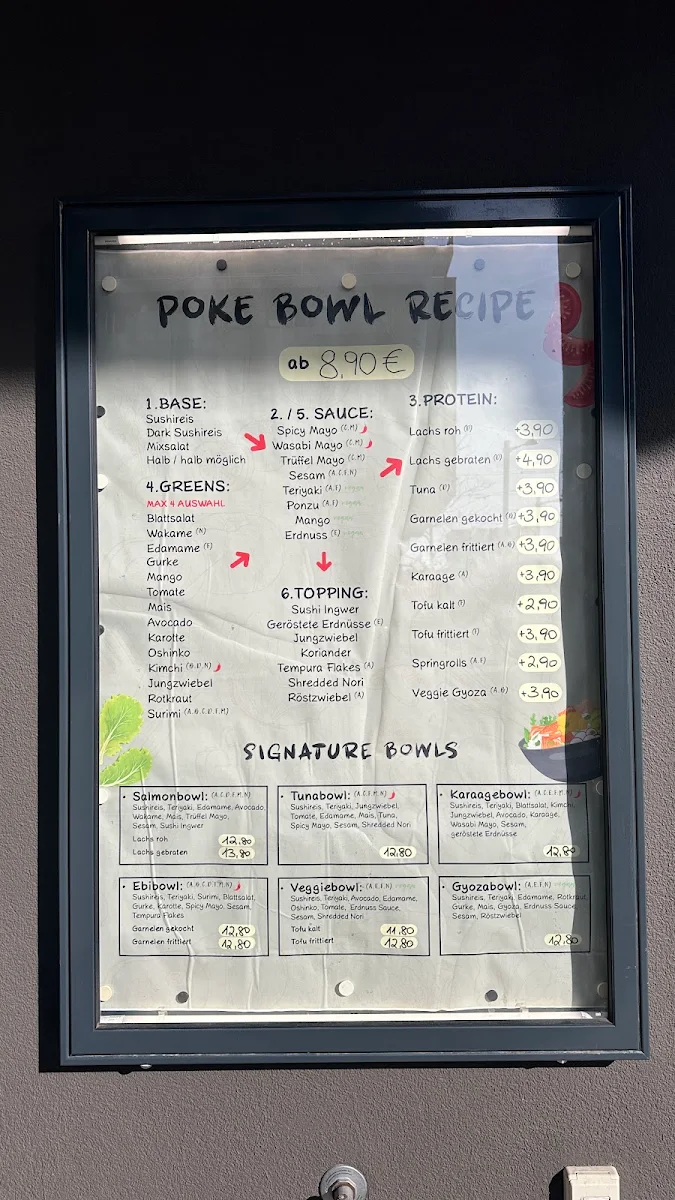 POKE BOWL RECIPE
ab 8,90 €
1.BASE:
Sushireis
Dark Sushireis
Mixsalat
Halb / halb möglich
2. / 5. SAUCE:
Spicy Mayo (C,M)
Wasabi Mayo (C,M)
Trüffel Mayo (C,M)
Sesam (A,C,F,N)
Teriyaki (A,F) vegan
Ponzu (A,F) vegan
Mango vegan
Erdnuss (E) vegan
3.PROTEIN:
Lachs roh (D) +3,90
Lachs gebraten (D) +4,90
Tuna (D) +3,90
Garnelen gekocht +3,90
Garnelen frittiert +3,90
Karaage (A) +3,90
Tofu kalt +2,90
Tofu frittiert +3,90
Springrolls (A,F) +2,90
Veggie Gyoza +3,90
4.GREENS:
MAX 4 AUSWAHL
Blattsalat
Wakame (N)
Edamame (F)
Gurke
Mango
Tomate
Mais
Avocado
Karotte
Oshinko
Kimchi
Jungzwiebel
Rotkraut
Surimi
6.TOPPING:
Sushi Ingwer
Geröstete Erdnüsse (E)
Jungzwiebel
Koriander
Tempura Flakes (A)
Shredded Nori
Röstzwiebel (A)
SIGNATURE BOWLS
· Salmonbowl:
Sushireis, Teriyaki, Edamame, Avocado,
Wakame, Mais, Trüffel Mayo,
Sesam, Sushi Ingwer
Lachs roh 12,80
Lachs gebraten 13,80
· Tunabowl:
Sushireis, Teriyaki, Jungzwiebel,
Tomate, Edamame, Mais, Tuna,
Spicy Mayo, Sesam, Shredded Nori
12,80
· Karaagebowl:
Sushireis, Teriyaki, Blattsalat, Kimchi,
Jungzwiebel, Avocado, Karaage,
Wasabi Mayo, Sesam,
geröstete Erdnüsse
12,80
· Ebibowl:
Sushireis, Teriyaki, Surimi, Blattsalat,
Gurke, Karotte, Spicy Mayo, Sesam,
Tempura Flakes
Garnelen gekocht 12,80
Garnelen frittiert 12,80
· Veggiebowl: (A,E,F,N) vegan
Sushireis, Teriyaki, Avocado, Edamame,
Oshinko, Tomate, Erdnuss Sauce,
Sesam, Shredded Nori
Tofu kalt 11,80
Tofu frittiert 12,80
· Gyozabowl: (A,E,F,N) vegan
Sushireis, Teriyaki, Edamame, Rotkraut,
Gurke, Mais, Gyoza, Erdnuss Sauce
Sesam, Röstzwiebel
12,80